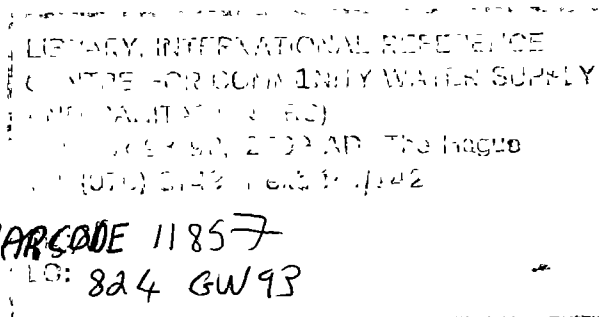 LIBRARY, INTERNATIONAL REFERENCE
CENTRE FOR COMMUNITY WATER SUPPLY
AND SANITATION (IRC)
2509 AD The Hague
(070)
BARCODE 11857
LO: 824 GW93